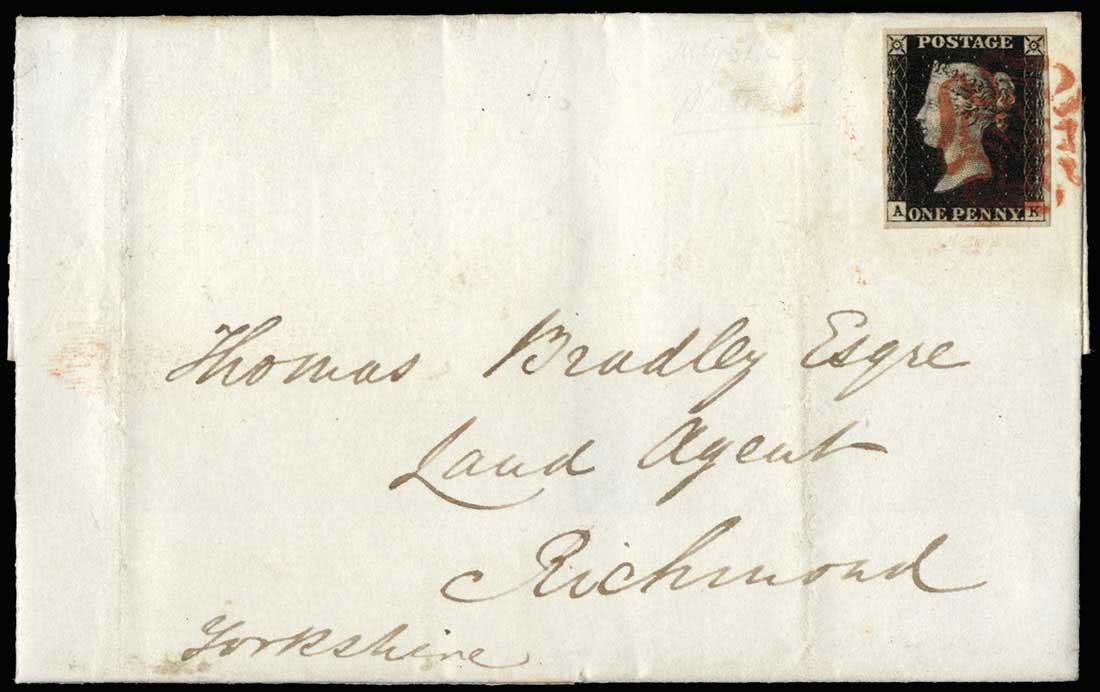 POSTAGE
A ONE PENNY. K
Thomas Bradley Esqre
Land Agent
Richmond
Yorkshire